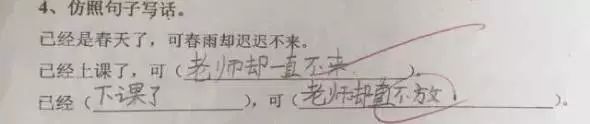 4、仿照句子写话。
已经是春天了，可春雨却迟迟不来。
已经上课了，可（老师却一直不来）。
已经（下课了），可（老师却直不放）。